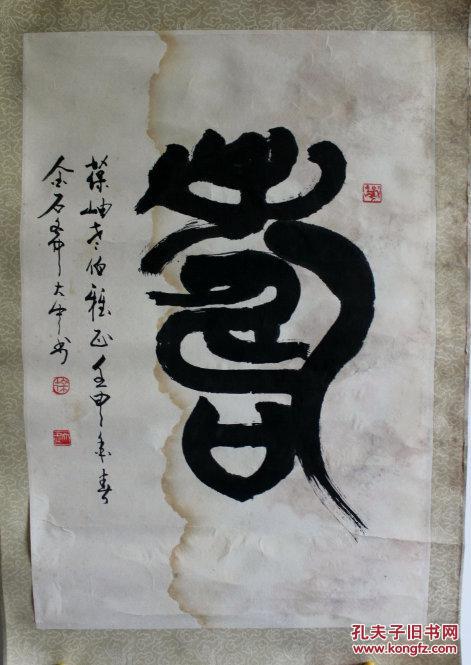 壽
葆岫老伯雅正壬申年春
金石
孔夫子旧书网
www.kongfz.com